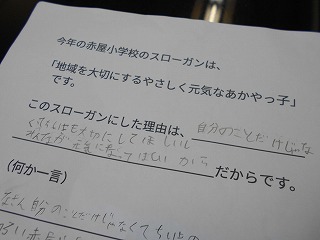 今年の赤屋小学校のスローガンは、
「地域を大切にするやさしく元気なあかやっ子」
です。
このスローガンにした理由は、自分のことだけじゃな
大切にしてほしいし
みんなが元気になってほしいから
だからです。
(何か一言)
自分のことだけじゃなくて